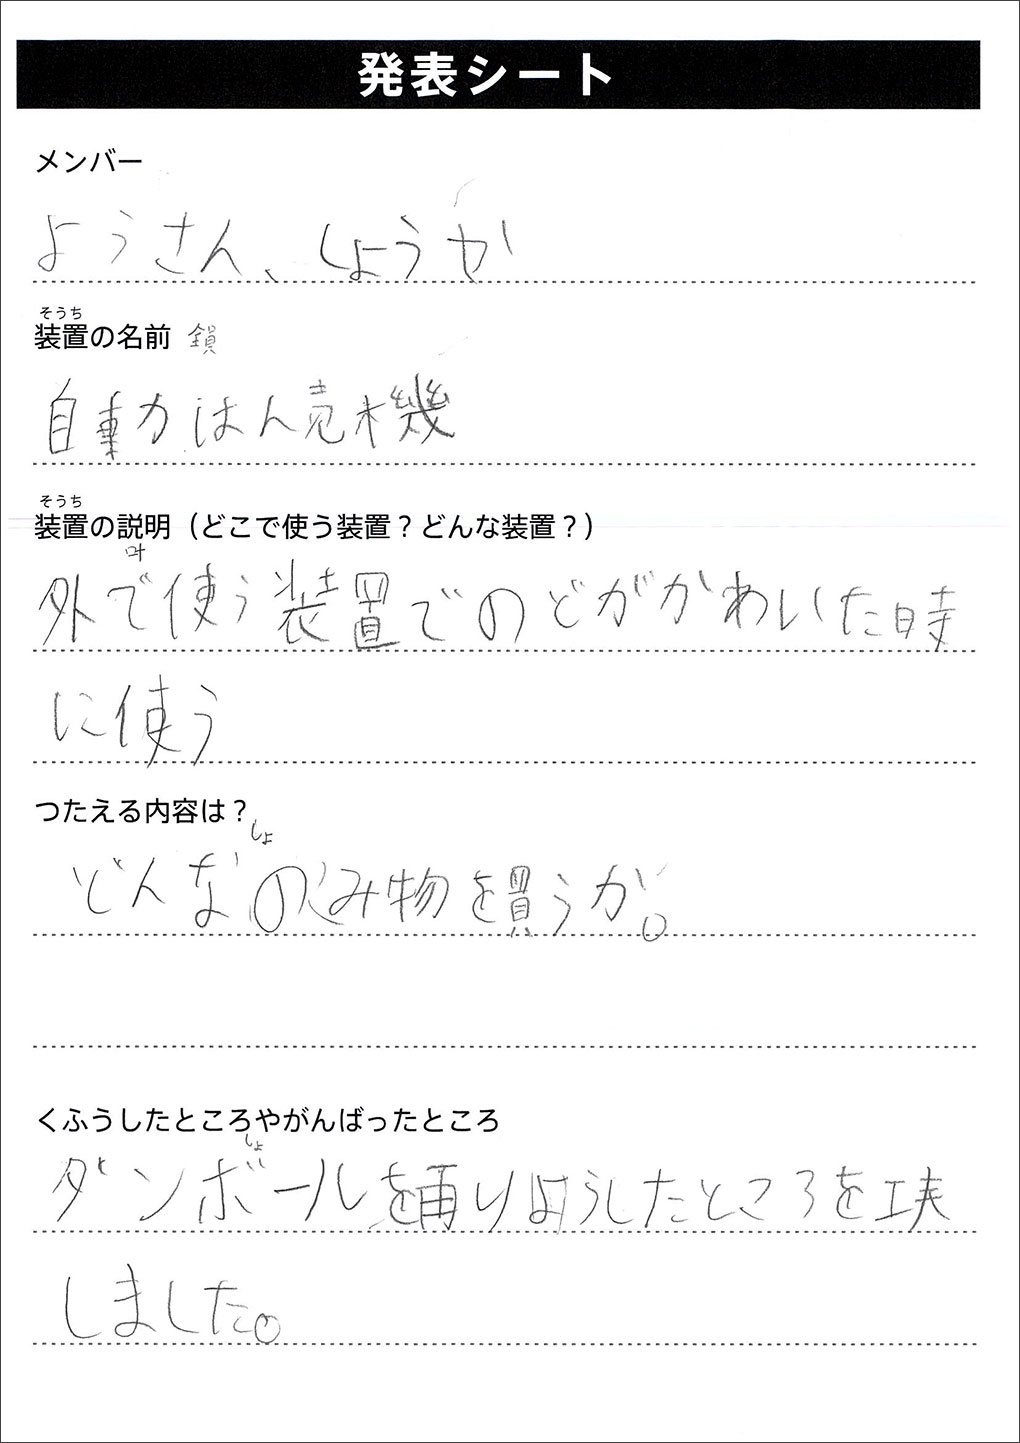 発表シート
メンバー
ようさん、しょうか
そうち
装置の名前
自動はん売機
そうち
装置の説明（どこで使う装置？どんな装置？）
外で使う装置でのどがかわいた時
に使う
つたえる内容は？
しょ
どんなのみ物を買うか。
くふうしたところやがんばったところ
しょ
ダンボールを再りようしたところを工夫
しました。